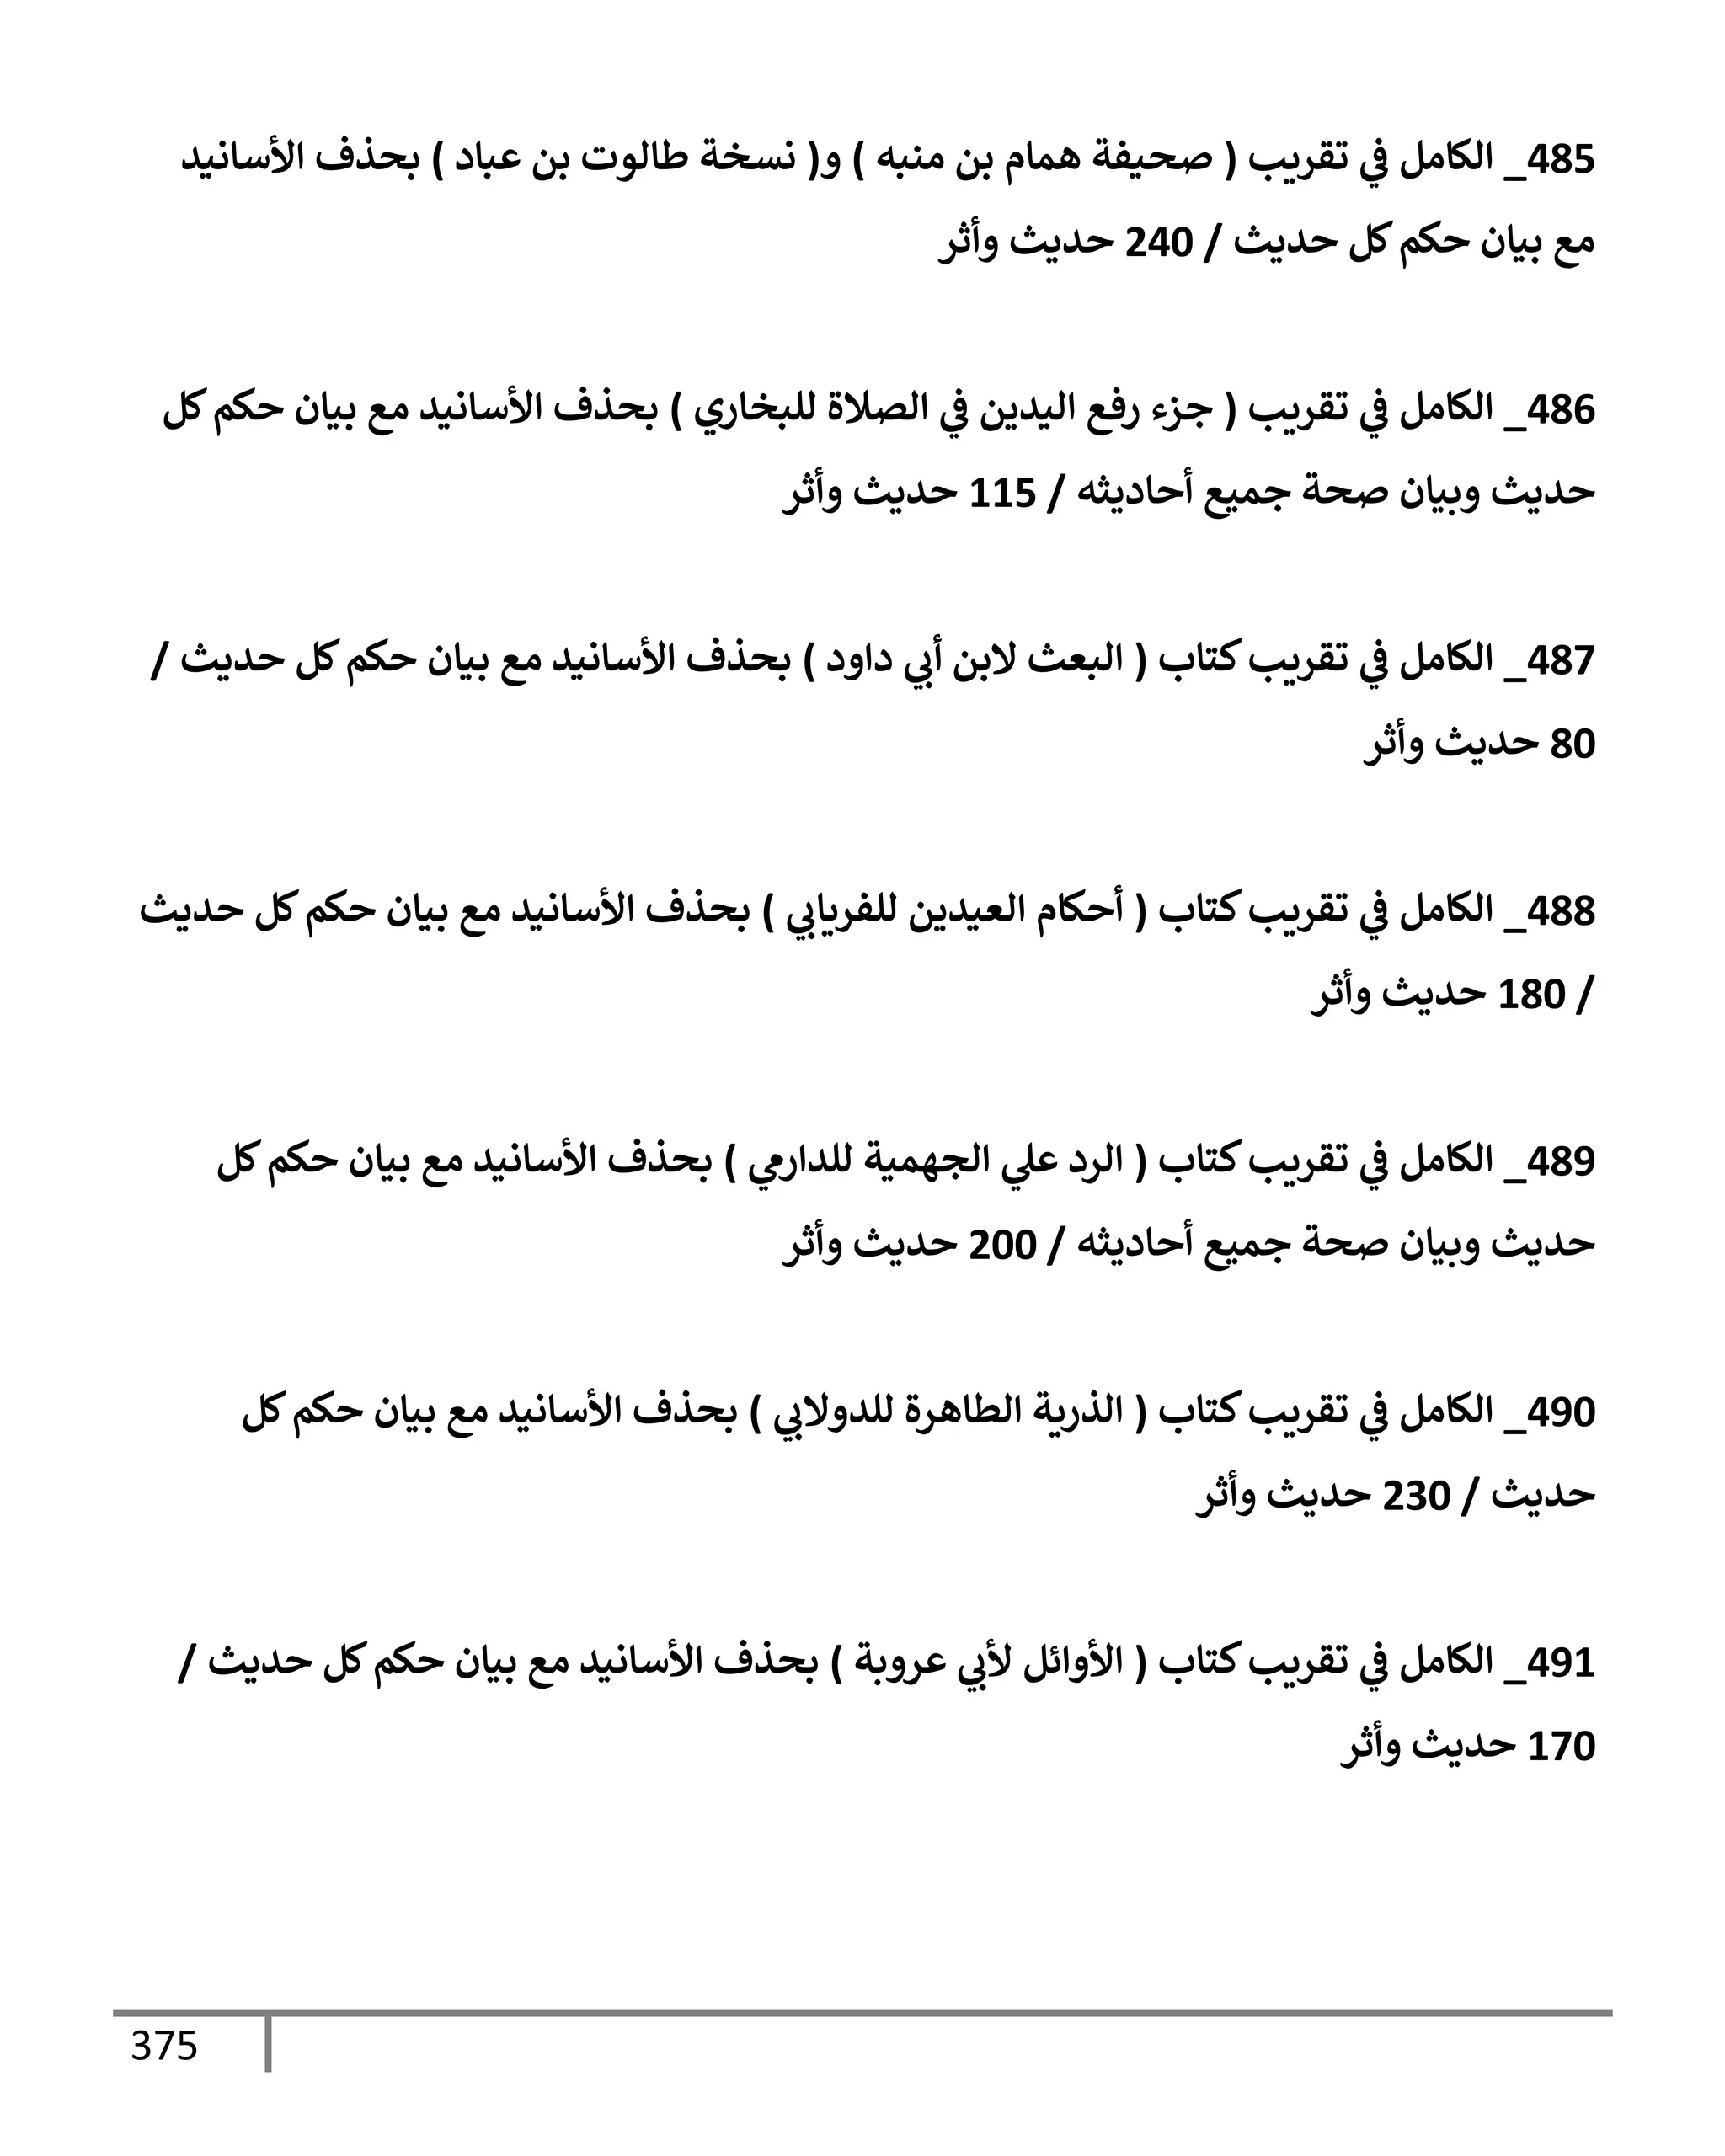 485_ الكامل في تقريب ( صحيفة همام بن منبه ) و( نسخة طالوت بن عباد ) بحذف الأسانيد
مع بيان حكم كل حديث / 240 حديث وأثر
486_ الكامل في تقريب ( جزء رفع اليدين في الصلاة للبخاري ) بحذف الأسانيد مع بيان حكم كل
حديث وبيان صحة جميع أحاديثه / 115 حديث وأثر
487_ الكامل في تقريب كتاب ( البعث لابن أبي داود ) بحذف الأسانيد مع بيان حكم كل حديث /
80 حديث وأثر
488_ الكامل في تقريب كتاب ( أحكام العيدين للفريابي ) بحذف الأسانيد مع بيان حكم كل حديث
/ 180 حديث وأثر
489_ الكامل في تقريب كتاب ( الرد علي الجهمية للدارمي ) بحذف الأسانيد مع بيان حكم كل
حديث وبيان صحة جميع أحاديثه / 200 حديث وأثر
490_ الكامل في تقريب كتاب ( الذرية الطاهرة للدولابي ) بحذف الأسانيد مع بيان حكم كل
حديث / 230 حديث وأثر
491_ الكامل في تقريب كتاب ( الأوائل لأبي عروبة ) بحذف الأسانيد مع بيان حكم كل حديث /
170 حديث وأثر
375